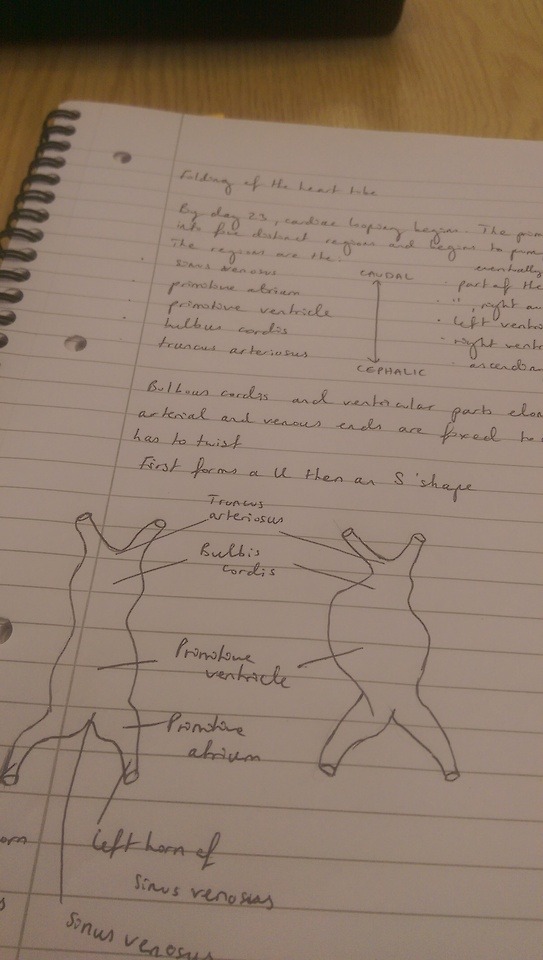 Folding of the heart tube
By day 23, cardiac looping begins. The prim
into five distinct regions and begins to pum
The regions are the: eventually
sinus venosus CAUDAL · part of the
primitive atrium · ", right au
primitive ventricle · left ventri
bulbus cordis · right ventr
truncus arteriosus CEPHALIC · ascendin
Bulbous cordis and ventricular parts elon
arterial and venous ends are fixed to
has to twist
First forms a U then an S shape
Truncus
arteriosus
Bulbis
cordis
Primitive
ventricle
Primitive
atrium
orn
Left horn of
sinus venosus
s
Sinus venosus